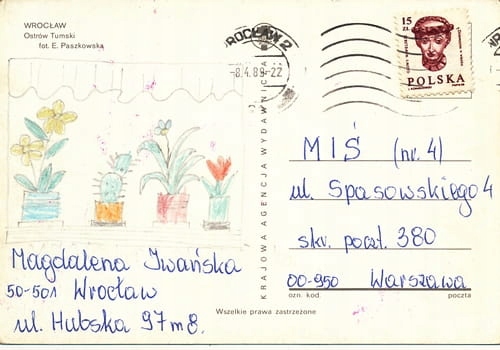 WROCŁAW
Ostrów Tumski
fot. E. Paszkowska
WROCŁAW 2
-8.4.89-22
15
ZŁ
POLSKA
KRAJOWA AGENCJA WYDAWNICZA
MIŚ (nr. 4)
ul. Spasowskiego 4
skr. poczt. 380
00-950 Warszawa
ozn. kod poczta
Magdalena Iwańska
50-501 Wrocław
ul. Hubska 97 m 8.
Wszelkie prawa zastrzeżone